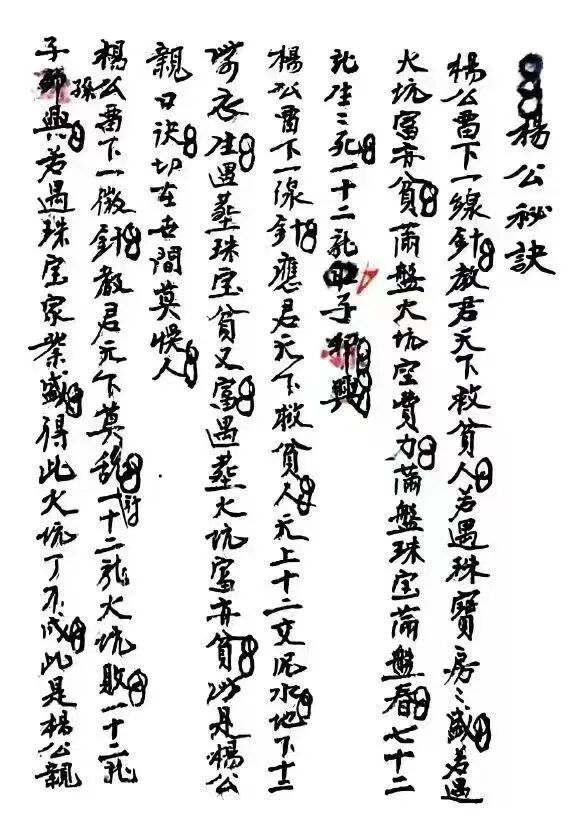 楊公秘訣
楊公畱下一線針教君天下救貧人若遇珠寶房々盛若遇
火坑富亦貧滿盤火坑空費力滿盤珠宝滿盤春七十二
龙生々死一十二龙子興
楊公畱下一線針應君天下救貧人天上十二交泥水地下十二
衣生遇墓珠宝貧又富遇墓火坑富亦貧此是楊公
親口訣切在世間莫悞人
楊公畱下一微針教君天下莫乱討一十二龙火坑敗一十二龙
子孫興若遇珠宝家業盛得此火坑丁不成此是楊公親